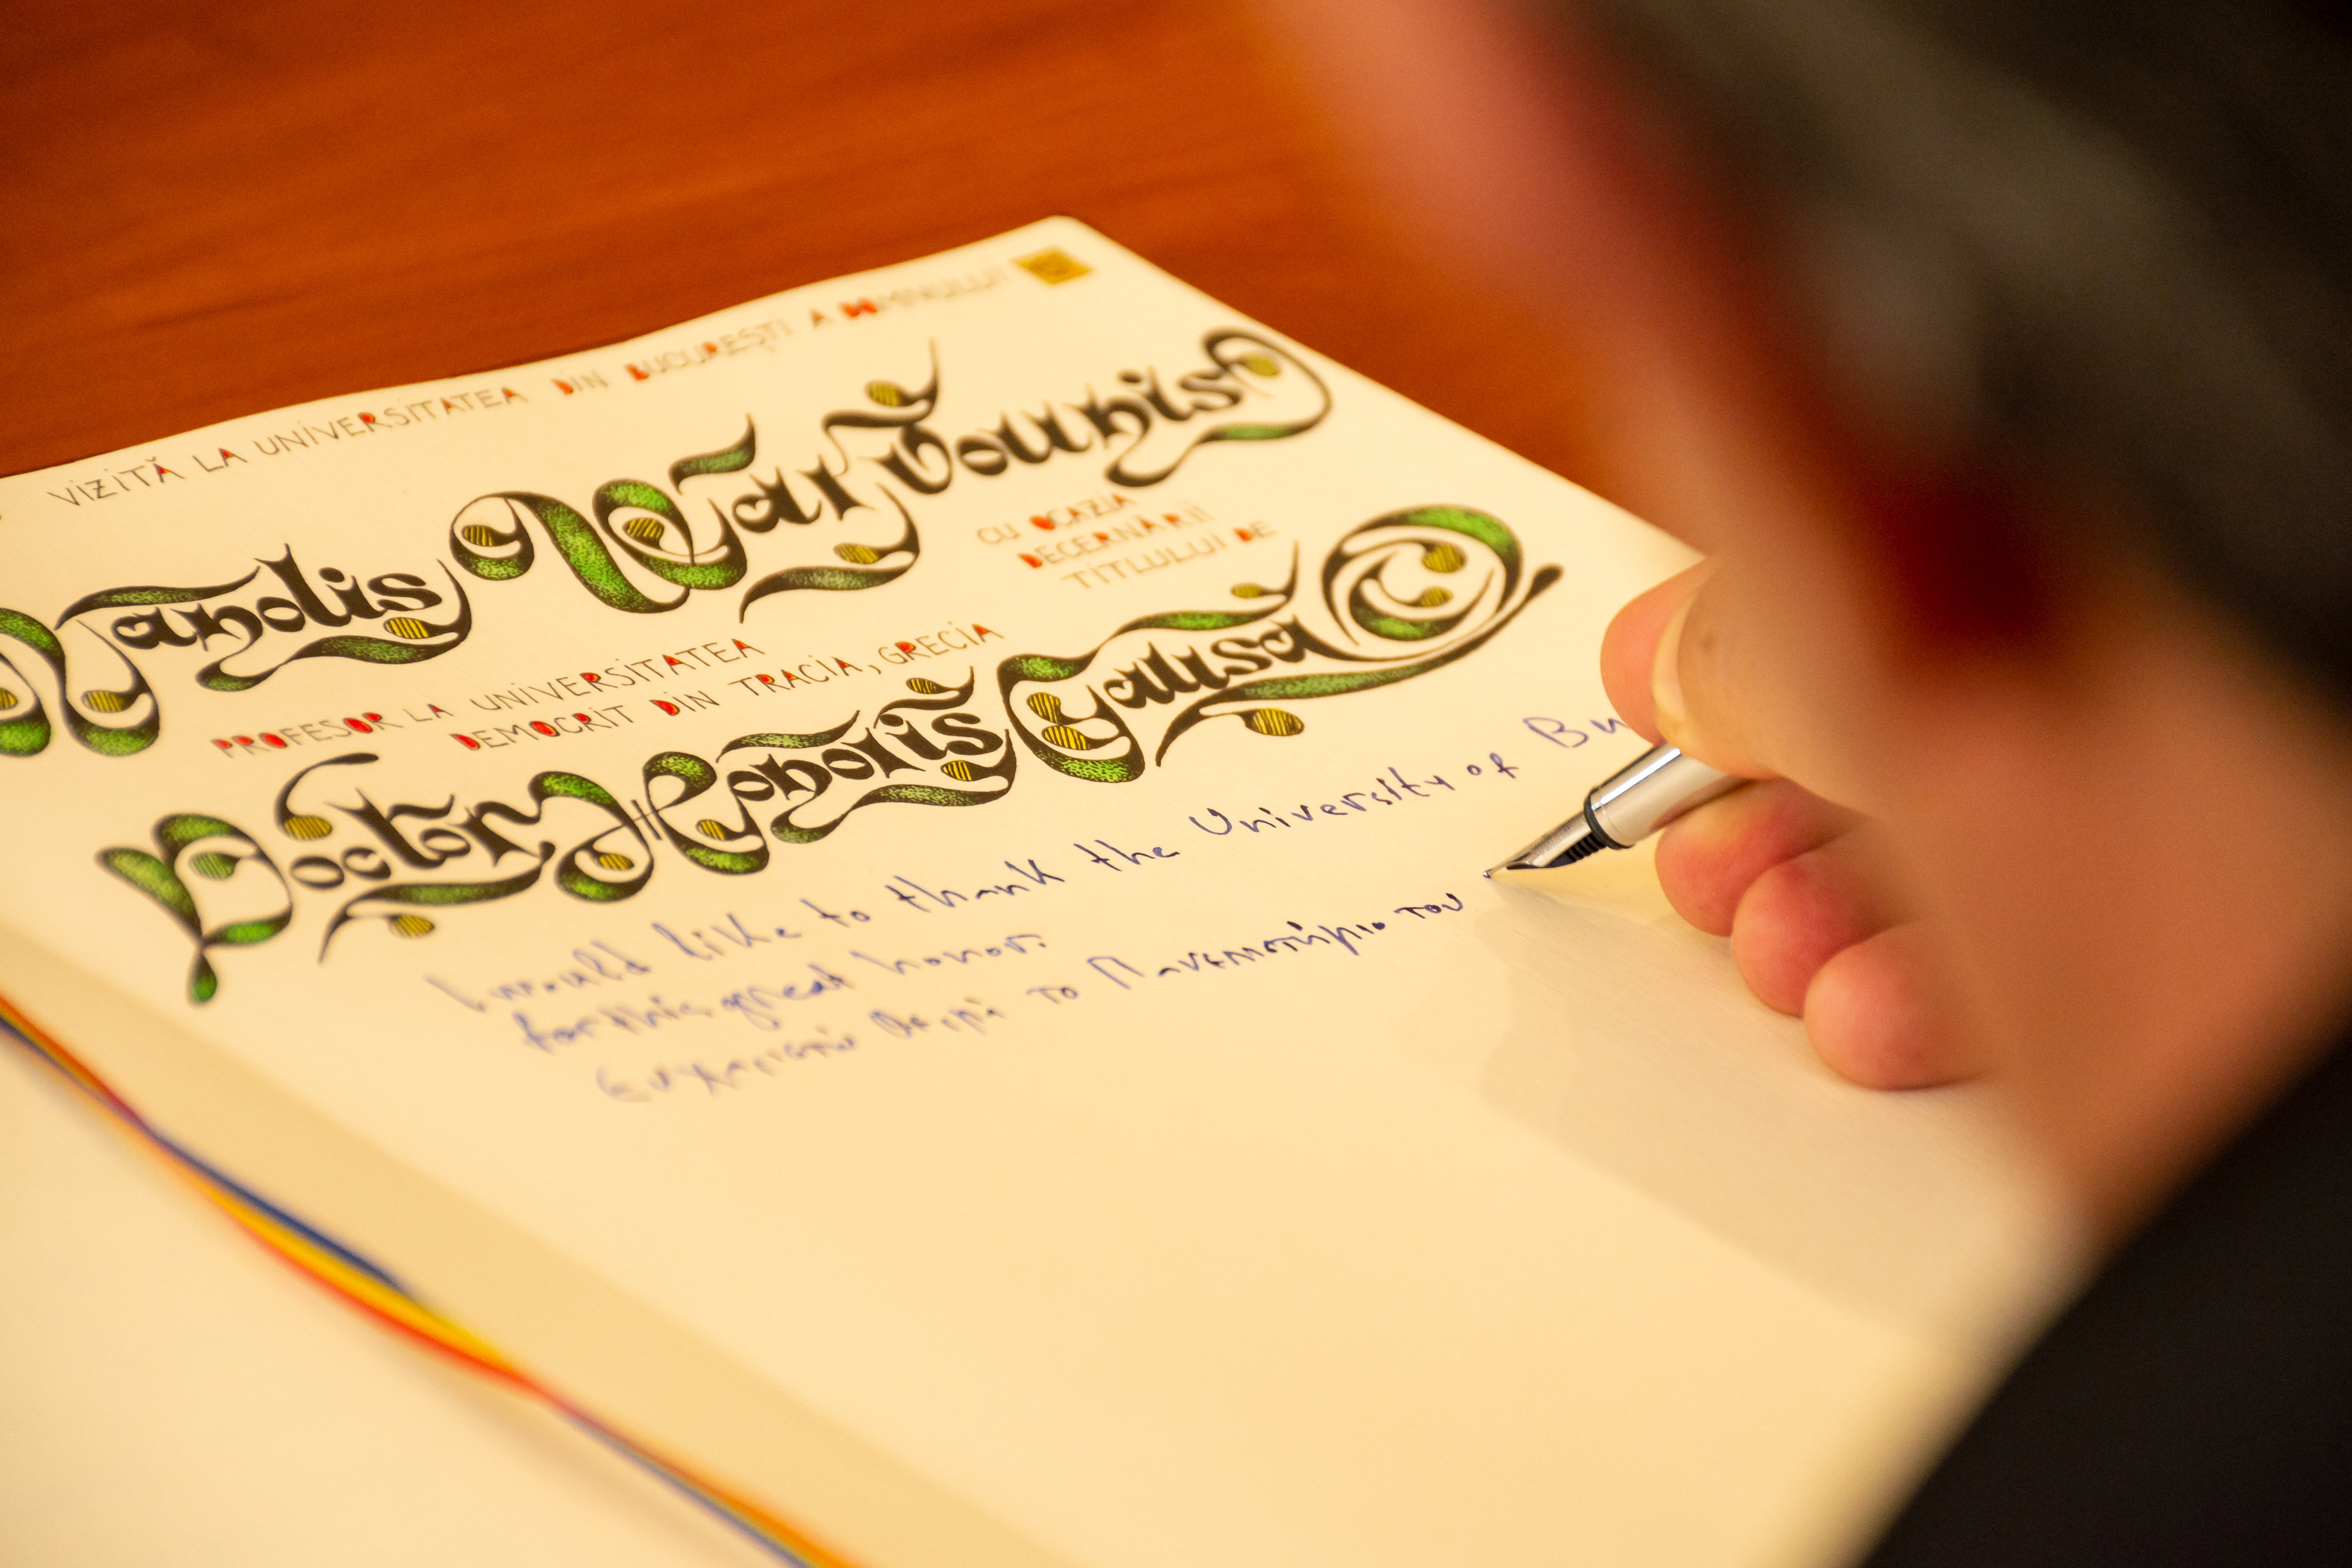 VIZITĂ LA UNIVERSITATEA DIN BUCUREȘTI A DOMNULUI
Manolis Varvounis
CU OCAZIA
DECERNĂRII
TITLULUI DE
PROFESOR LA UNIVERSITATEA
DEMOCRIT DIN TRACIA, GRECIA
Doctor Honoris Causa
I would like to thank the University of Bu
for this great honor.
Ευχαριστώ θερμά το Πανεπιστήμιο του